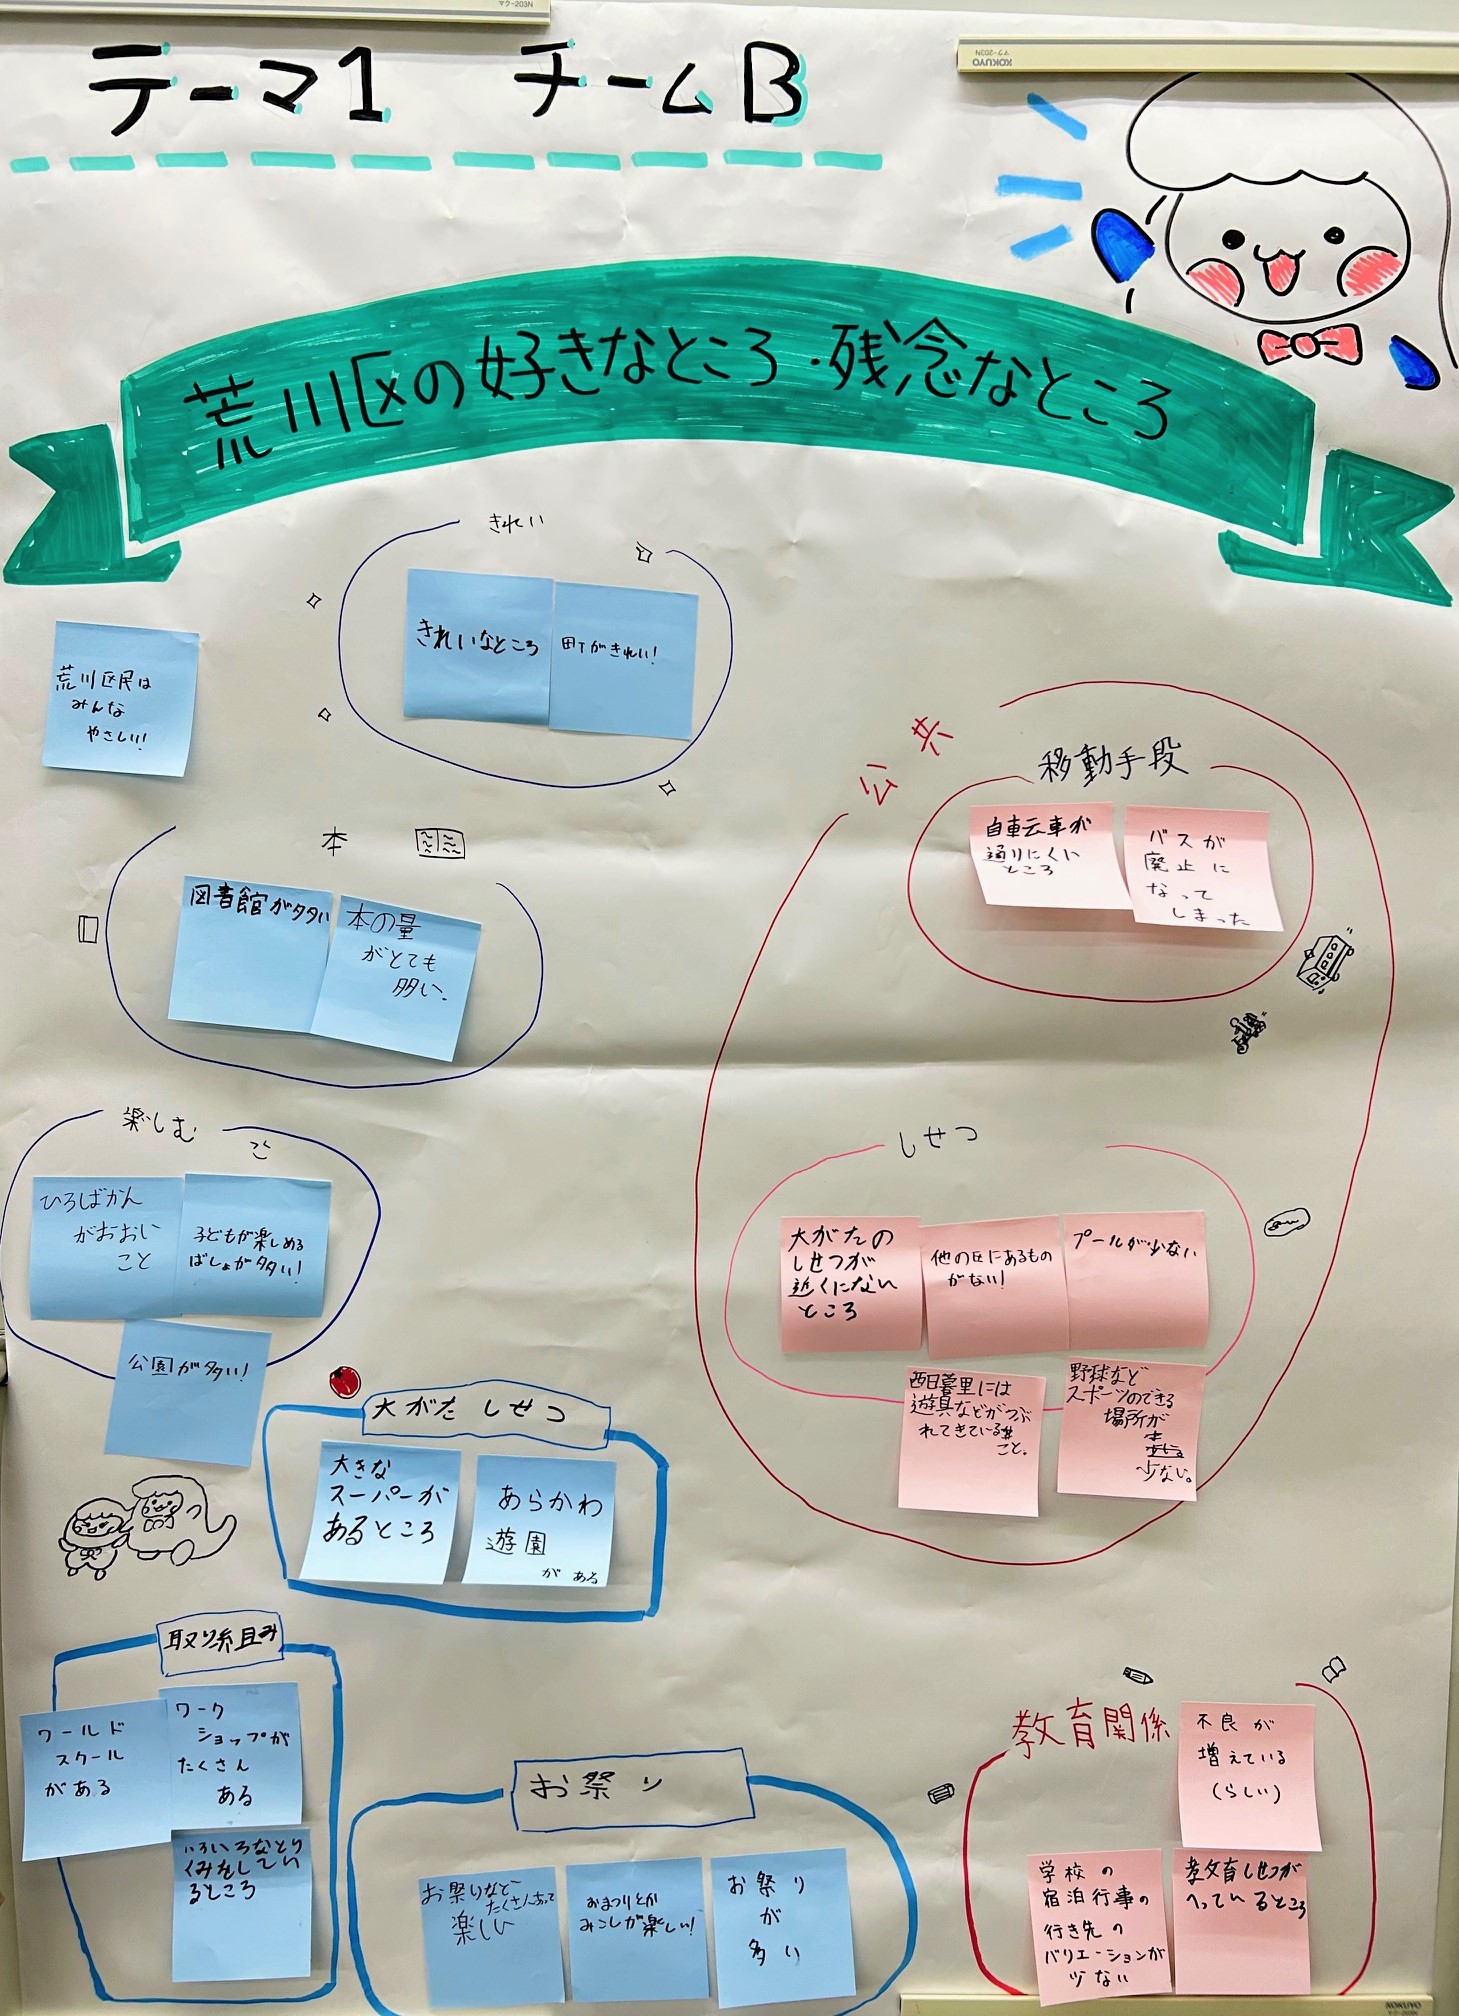 マク-203N
KOKUYO
マク-203N
テーマ1 チームB
荒川区の好きなところ・残念なところ
きれい
きれいなところ
町がきれい!
荒川区民は
みんな
やさしい!
本
図書館が多い
本の量
がとても
多い.
楽しむ
ひろばかん
がおおい
こと
子どもが楽しめる
ばしょが多い!
公園が多い!
大がたしせつ
大きな
スーパーが
あるところ
あらかわ
遊園
がある
取り組み
ワールド
スクール
がある
ワーク
ショップが
たくさん
ある
いろいろなとり
くみをしてい
るところ
お祭り
お祭りなど
たくさんあって
楽しい
おまつりとか
みこしが楽しい!
お祭り
が
多い
公共
移動手段
自転車が
通りにくい
ところ
バスが
廃止に
なって
しまった
しせつ
大がたの
しせつが
近くにない
ところ
他の区にあるもの
がない!
プールが少ない
西日暮里には
遊具などがつぶ
れてきている
こと。
野球など
スポーツのできる
場所が
少ない。
教育関係
不良が
増えている
(らしい)
学校の
宿泊行事の
行き先の
バリエーションが
少ない
教育しせつが
へっているところ
KOKUYO